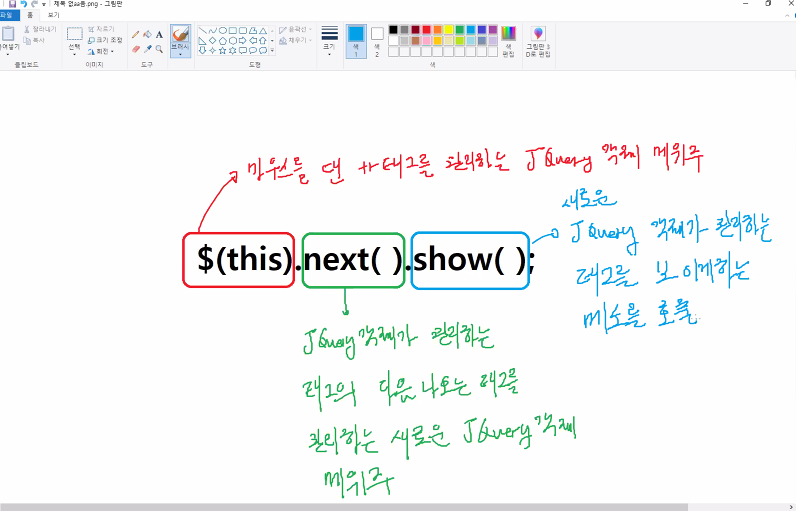 제목 없음.png - 그림판
파일 홈 보기
붙여넣기 잘라내기 복사 선택 자르기 크기 조정 회전 브러시 윤곽선 채우기 크기 색 1 색 2 색 편집 그림판 3D로 편집
클립보드 이미지 도구 도형 색
마우스를 댄 tr태그를 관리하는 JQuery 객체 메위주
새로운
JQuery 객체가 관리하는
$(this).next( ).show( );
태그를 보이게하는
메소를 호출
JQuery객체가 관리하는
태그의 다음 나오는 태그를
관리하는 새로운 JQuery객체
메위주